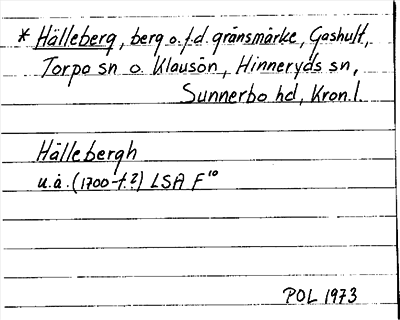 * Hälleberg, berg o.f.d. gränsmärke, Gashult,
Torpa sn o. Klausön, Hinneryds sn,
Sunnerbo hd, Kron.l.
Hällebergh
u.å. (1700-t.?) LSA F¹⁰
POL 1973